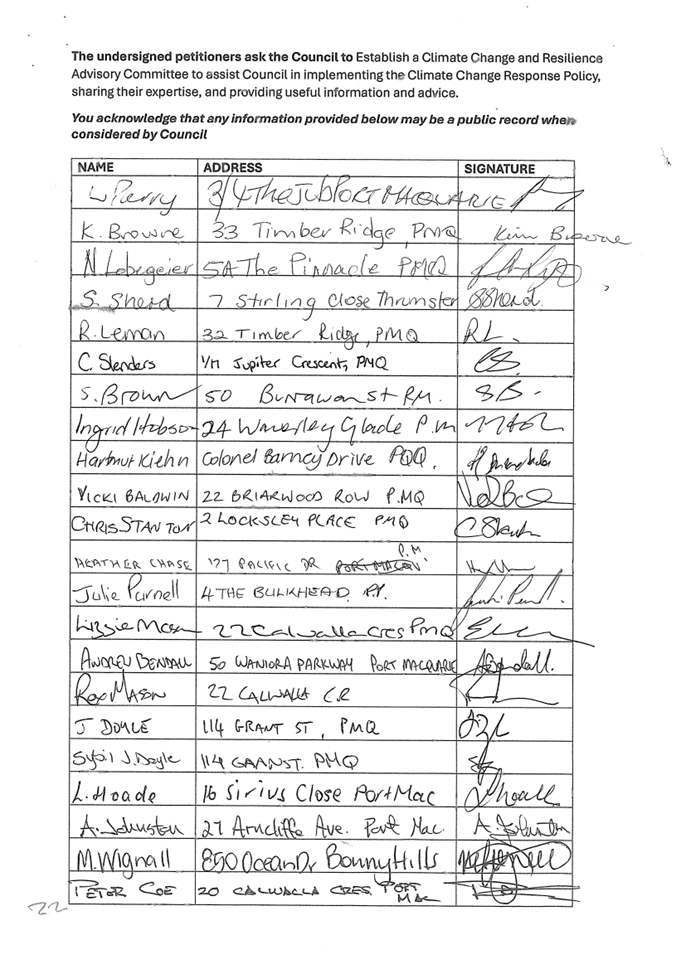 The undersigned petitioners ask the Council to Establish a Climate Change and Resilience
Advisory Committee to assist Council in implementing the Climate Change Response Policy,
sharing their expertise, and providing useful information and advice.
You acknowledge that any information provided below may be a public record when
considered by Council
NAME ADDRESS SIGNATURE
L Perry 3/4 The Jib PORT MACQUARIE
K. Browne 33 Timber Ridge, PMQ Kim Browne
N Lobegeier 5A The Pinnacle PMQ
S. Sherd 7 Stirling Close Thrumster SSherd.
R. Leman 32 Timber Ridge, PMQ RL.
C. Slenders Jupiter Crescent, PMQ CS
S. Brown 50 Burrawan st P.M. SB -
Ingrid Hobson 24 Waverley Glade P.M
Hartmut Kiehn Colonel Barney Drive PQQ.
VICKI BALDWIN 22 BRIARWOOD ROW P.MQ
CHRIS STANTON 2 LOCKSLEY PLACE PMQ
HEATHER CHASE 177 PACIFIC DR P.M
Julie Purnell 4 THE BULKHEAD
Lizzie Mason 22 Calwalla Cres PMQ
ANDREW BENDALL 50 WANIORA PARKWAY PORT MACQUARIE ABendall.
Rex MASON 22 CALWALLA CR
J DOYLE 114 GRANT ST, PMQ
Sybil J. Doyle 114 GRANT ST. PMQ
L. Hoade 16 Sirius Close Port Mac LHoade
A. Johnston 27 Arncliffe Ave. Port Mac. A. Johnston
M. Wignall 850 Ocean Dr Bonny Hills
PETER COE 20 CALWALLA CRES. PORT
MAC
22